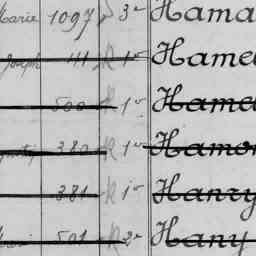 Marie 1097 3e Hama
Joseph 41 R 1er Hamel
500 R 1er Hamel
380 R 1er Hamon
381 R 1er Hanry
501 R 2e Hany